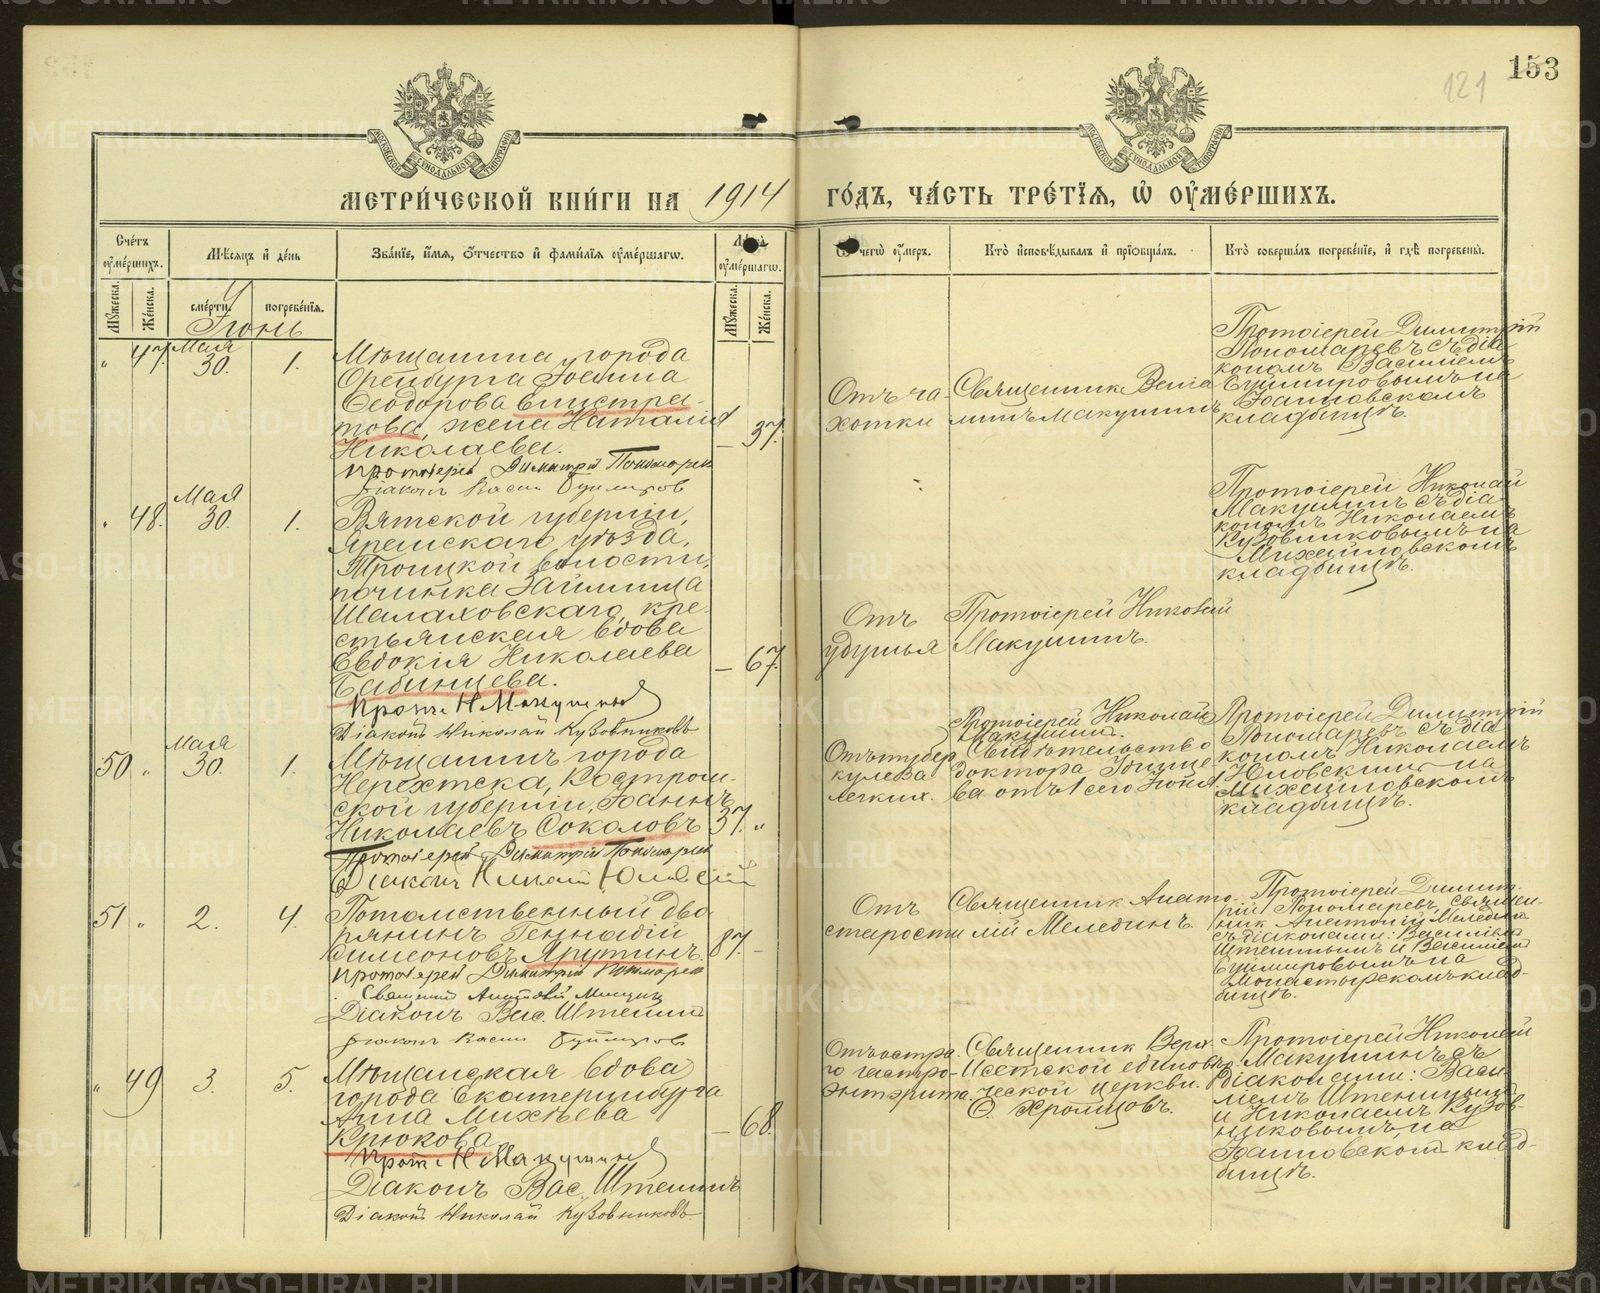 153
121
МЕТРИ́ЧЕСКОЙ КНИ́ГИ НА 1914
ГО́ДЪ, ЧА́СТЬ ТРЕ́ТІЯ, Ѡ ОУМЕ́РШИХЪ.
Сче́тъ оумершихъ.
Мѣсяцъ и день
Зва́ніе, и́мя, о́тчество и фами́лія оуме́ршагѡ.
Лѣта оумершагѡ.
Ѿ чегѡ оумеръ.
Кто исповѣдывалъ и пріобщалъ.
Кто совершалъ погребеніе, и гдѣ погребены.
Мужеска.
Женска.
смерти.
погребенія.
Мужеска.
Женска.
Іюнь
„ 47. Мая 30. 1.
Мѣщанина города
Оренбурга Іоанна
Ѳеодорова Епистра-
това, жена Наталія
Николаева.
– 37.
Протоіерей Димитрій Пономарев
Діаконъ Васил
Отъ ча-
хотки
Священникъ Веніа
минъ Макушинъ
Протоіерей Димитрій
Пономаревъ съ діа
кономъ Василіемъ
на
Іоанновскомъ
кладбищѣ.
„ 48. Мая 30. 1.
Вятской губерніи,
Яренскаго уѣзда,
Троицкой волости,
починка Займища
Шалаховскаго, кре-
стьянская вдова
Евдокія Николаева
Бабинцева.
– 67.
Прот. Н Макушинъ
Діаконъ Николай Кузовниковъ
Отъ
удушья
Протоіерей Николай
Макушинъ.
Протоіерей Николай
Макушинъ съ діа-
кономъ Николаемъ
Кузовниковымъ на
Михайловскомъ
кладбищѣ.
50 „ Мая 30. 1.
Мѣщанинъ города
Нерехтска, Костром-
ской губерніи, Іоаннъ
Николаевъ Соколовъ 37. „
Протоіерей Димитрій Пономарев
Діаконъ Николай Юловскій
Отъ тубер
кулеза
легкихъ.
Протоіерей Николай
Макушинъ.
Свидѣтельство
доктора
ва отъ 1 сего Іюня
Протоіерей Димитрій
Пономаревъ съ діа
кономъ Николаемъ
Юловскимъ на
Михайловскомъ
кладбищѣ.
51 „ 2. 4.
Потомственный дво-
рянинъ Геннадій
Симеоновъ Ярутинъ. 87. –
Протоіерей Димитрій Пономарев
Священникъ Анатолій
Діаконъ Вас. Штенинъ
Діаконъ Васил
Отъ
старости
Священникъ Анато-
лій Меледин.
Протоіерей Димит-
рій Пономаревъ, священ-
никъ Анатолій Меледин
съ діаконами: Василіемъ
Штенинымъ и Василіемъ
на
Монастырскомъ клад-
бищѣ.
„ 49 3. 5.
Мѣщанская вдова
города Екатеринбурга
Анна Михѣева
Крюкова
– 68.
Прот. Н Макушинъ
Діаконъ Вас. Штенинъ
Діаконъ Николай Кузовниковъ
Отъ остра-
го гастро-
энтерита.
Священникъ Верх-
Исетской единовѣр
ческой церкви.
Ѳ. Хромцовъ.
Протоіерей Николай
Макушинъ съ
діаконами: Васи
ліемъ Штенинымъ
и Николаемъ Кузов-
никовымъ, на
Іоанновскомъ клад-
бищѣ.
METRIKI.GASO-URAL.RU